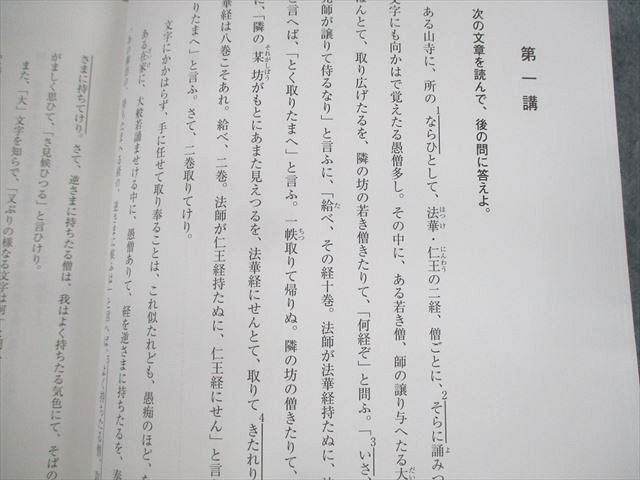 第一講
次の文章を読んで、後の問に答えよ。
ある山寺に、所の1ならひとして、法華・仁王の二経、僧ごとに、2そらに誦みつ
文字にも向かはで覚えたる愚僧多し。その中に、ある若き僧、師の譲り与へたる大
ほんとて、取り広げたるを、隣の坊の若き僧きたりて、「何経ぞ」と問ふ。「3いさ、
師が譲りて侍るなり」と言ふに、「給べ、その経十巻。法師が法華経持たぬに、
と言へば、「とく取りたまへ」と言ふ。一帙取りて帰りぬ。隣の坊の僧きたりて、
に、「隣の某坊がもとにあまた見えつるを、法華経にせんとて、取りて4きたれり
華経は八巻こそあれ。給べ、二巻。法師が仁王経持たぬに、仁王経にせん」と言
りたまへ」と言ふ。さて、二巻取りてけり。
文字にかかはらず、手に任せて取り奉ることは、これ似たれども、愚痴のほど、
ある在家に、大般若誦ませける中に、愚僧ありて、経を逆さまに持ちたるを、奏
さまに持ちてけり。さて、逆さまに持ちたる僧は、我はよく持ちたる気色にて、そばの
がましく思ひて、「さ見候ひつる」と言ひけり。
また、「大」文字を知らで、「又ぶりの様なる文字は何